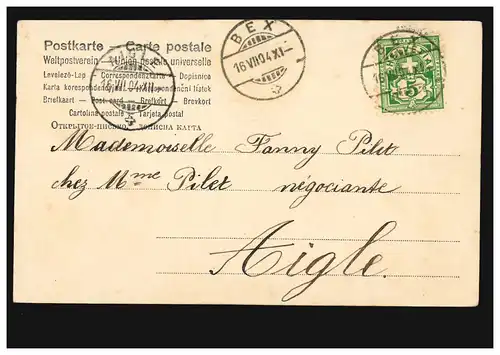 Postkarte – Carte postale
Weltpostverein – Union postale universelle
Levelező-Lap – Correspondenzkarte – Dopisnice
Karta korespondencyjna – Korespondenční lístek
Briefkaart – Post card – Brefkort – Brevkort
Cartolina postale – Tarjeta postal
Открытое письмо
BEX
16 VII 04 XI
16 VII 04 XII
BEX
5
Mademoiselle Fanny Pilet
chez Mme Pilet négociante
Aigle.